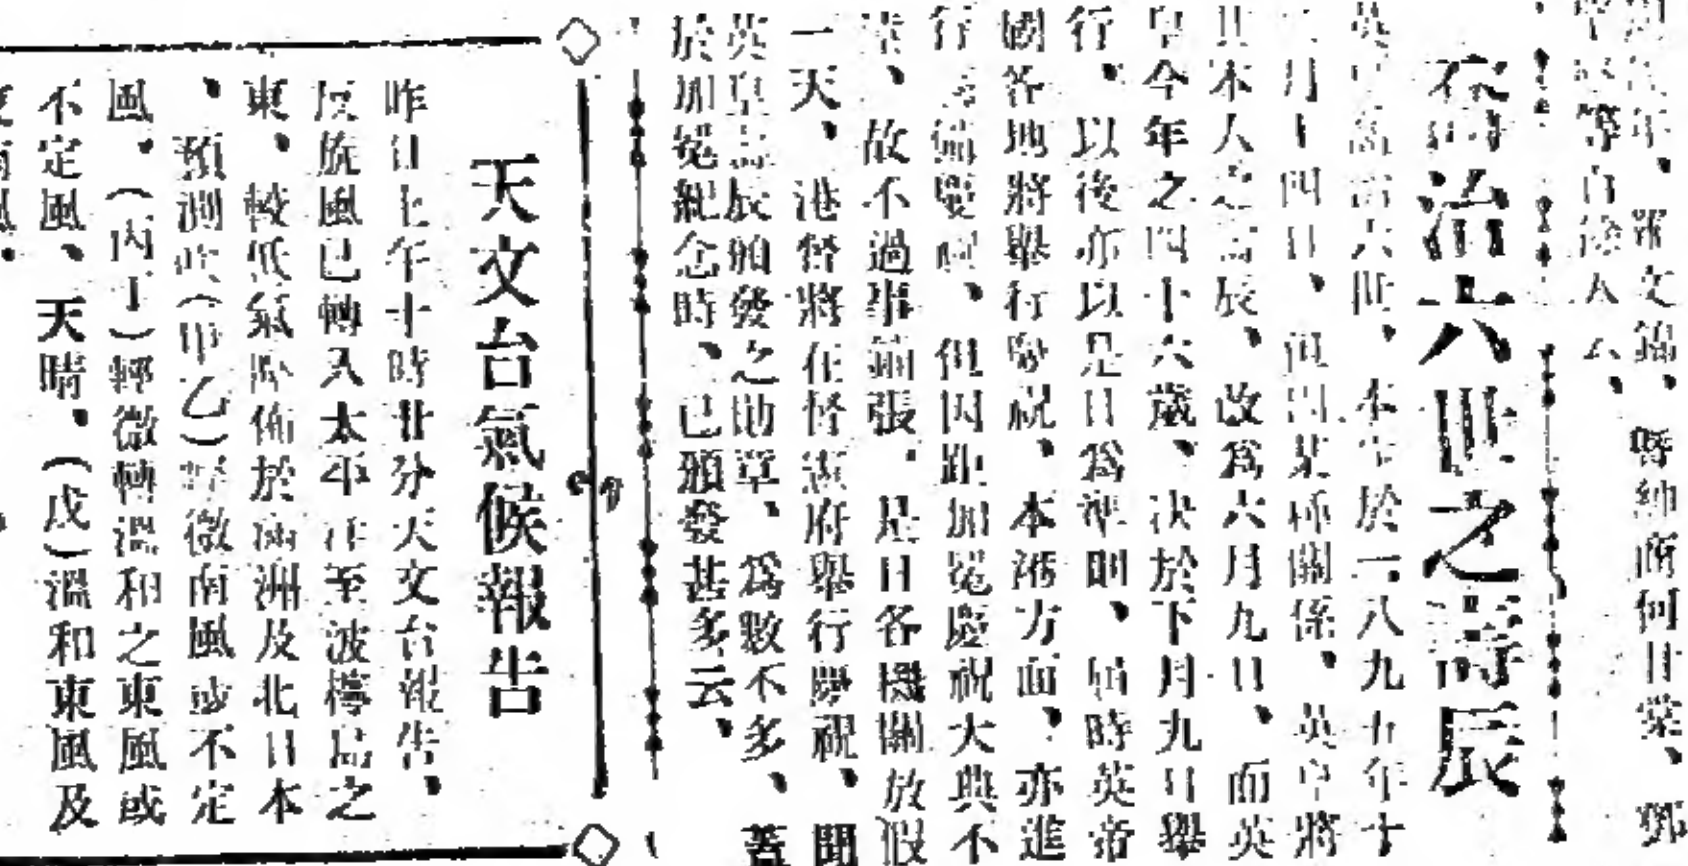 年、羅文錦、
紳商何甘棠、鄧
等百餘人
喬治六世之壽辰
喬治六世、本生於一八九五年十
二月十四日、但因某種關係、英皇將
其本人之壽辰、改為六月九日、而英
皇今年之四十六歲、決於下月九日舉
行、以後亦以是日為準則、屆時英帝
國各地將舉行慶祝、本港方面、亦進
行慶祝、但因距加冕慶祝大典不
故不過事鋪張、是日各機關放假
一天、港督將在督憲府舉行慶祝、聞
英皇壽辰舶發之勛章、為數不多、蓋
於加冕紀念時、已頒發甚多云、
天文台氣候報告
昨日上午十時廿分天文台報告、
反旋風已轉入太平洋至波檸島之
東、較低氣壓佈於滿洲及北日本
、預測吹（甲乙）輕微南風或不定
風、（丙丁）輕微轉溫和之東風或
不定風、天晴、（戊）溫和東風及